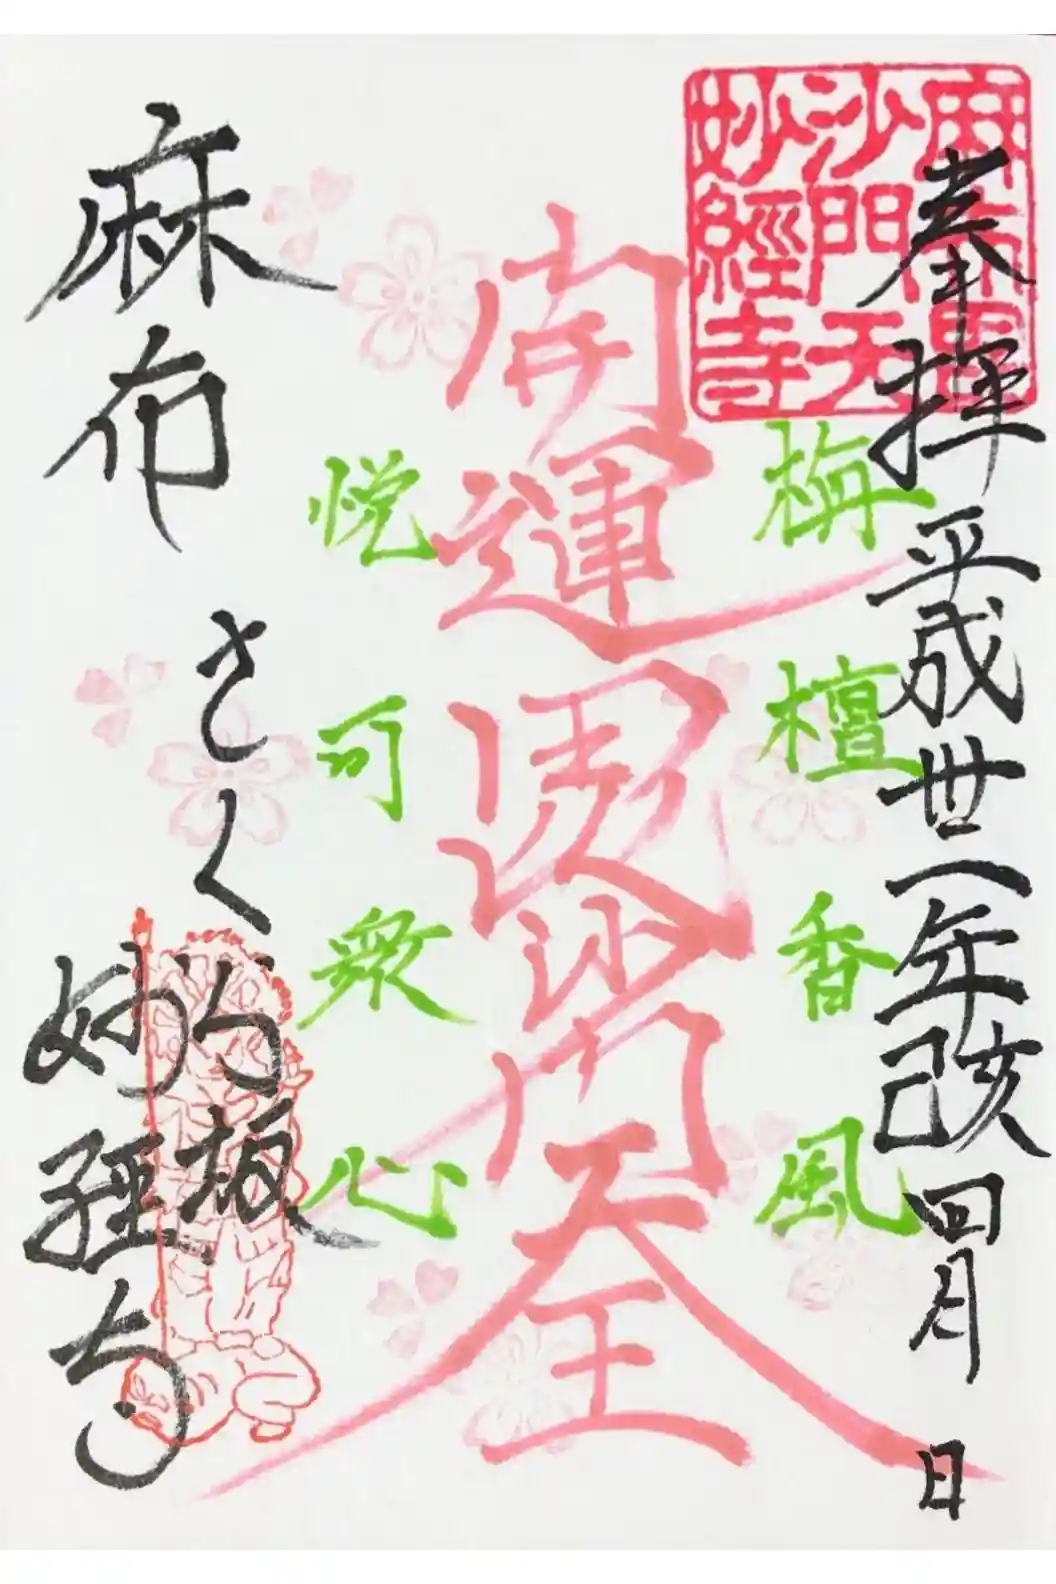 麻布毘
沙門天
妙經寺
奉拝 平成丗一年己亥四月 日
栴檀香風
開運毘沙門天王
悦可衆心
麻布 さくら坂
妙経寺